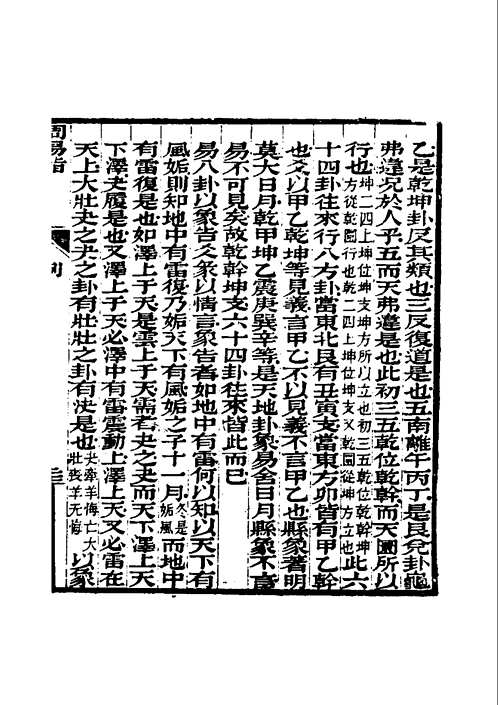 乙是乾坤卦反其類也三反復道是也五南離午丙丁是艮兌卦龜
弗違况於人乎五而天弗違是也此初三五乾位乾幹而天圜所以
行也坤二四上坤位坤支坤方所以立也初三五乾位乾幹坤方從乾圜行也乾二四上坤位坤支又乾圜從坤方立也此六
十四卦往來行八方卦當東北艮有丑寅支當東方卯皆有甲乙幹
也爻以甲乙乾坤等見義言甲乙不以見義不言甲乙也縣象著明
莫大日月乾甲坤乙震庚巽辛等是天地卦象易舍日月縣象不言
易不可見矣故乾幹坤支六十四卦往來皆此而已
易八卦以象告爻彖以情言象告者如地中有雷何以知以天下有
風姤則知地中有雷復乃姤天下有風姤之子十一月冬是姤風而地中
有雷復是也如澤上于天是雲上于天需者夬之夬而天下澤上天
下澤夬履是也又澤上于天必澤中有雷震動上澤上天又必雷在
天上大壯夬之夬之卦有壯壯之卦有決是也夬牽羊悔亡大壯喪羊无悔以象
周易指